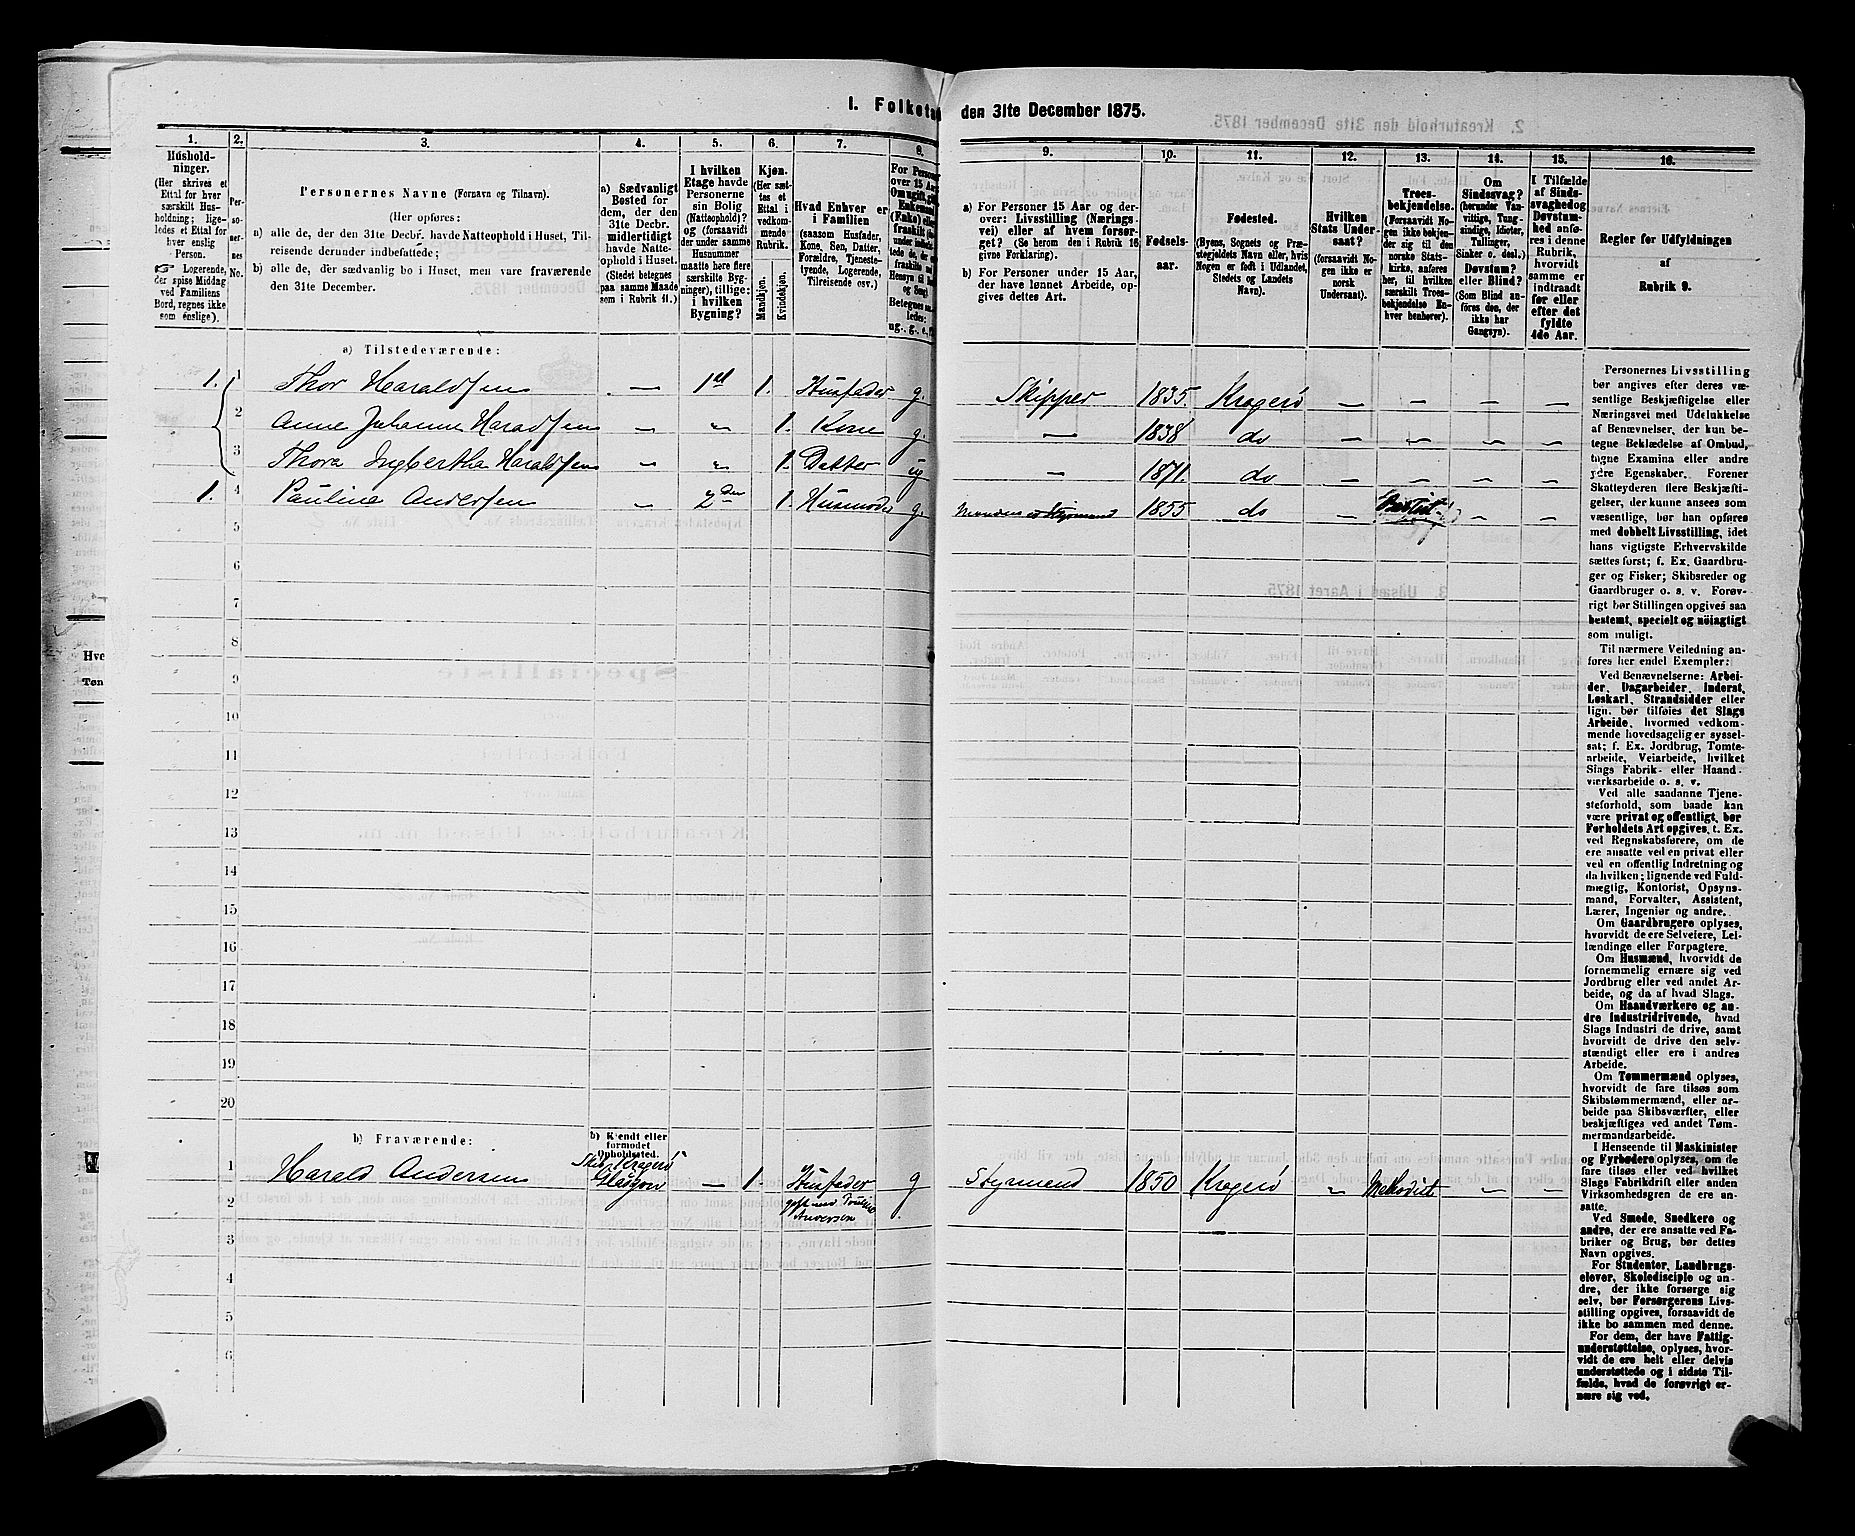 I. Folketæl den 31te December 1875.
1. 2. 3. 4. 5. 6. 7. 8. 9. 10. 11. 12. 13. 14. 15. 16.
Husholdninger.
(Her skrives et Ettal for hver særskilt Husholdning; ligeledes et Ettal for hver enslig Person.
☞ Logerende, der spise Middag ved Familiens Bord, regnes ikke som enslige).
Personernes No.
Personernes Navne (Fornavn og Tilnavn).
(Her opføres:
a) alle de, der den 31te Decbr. havde Natteophold i Huset, Tilreisende derunder indbefattede;
b) alle de, der sædvanlig bo i Huset, men vare fraværende den 31te December.
a) Sædvanligt Bosted for dem, der den 31te Decbr. midlertidigt havde Natteophold i Huset.
(Stedet betegnes paa samme Maade som i Rubrik 11.)
I hvilken Etage havde Personerne sin Bolig (Natteophold)? og (forsaavidt der under samme Husnummer maatte høre flere særskilte Bygninger), tillige: i hvilken Bygning?
Kjøn.
(Her sættes et Ettal i vedkommende Rubrik.
Mandkjøn.
Kvindekjøn.
Hvad Enhver er i Familien
(saasom Husfader, Kone, Søn, Datter, Forældre, Tjenestetyende, Logerende, Tilreisende osv.)
a) For Personer 15 Aar og derover: Livsstilling (Næringsvei) eller af hvem forsørget? (Se herom den i Rubrik 16 givne Forklaring).
b) For Personer under 15 Aar, der have lønnet Arbeide, opgives dettes Art.
Fødselsaar.
Fødested.
(Byens, Sognets og Præstegjeldets Navn eller, hvis Nogen er født i Udlandet, Stedets og Landets Navn).
Hvilken Stats Undersaat?
(forsaavidt Nogen ikke er norsk Undersaat).
Troesbekjendelse.
(Forsaavidt Nogen ikke bekjender sig til den norske Statskirke, anføres her, til hvilken særskilt Troesbekjendelse Enhver henhører).
Om Sindssvag? (herunder Vanvittige, Tungsindige, Idioter, Tullinger, Sinker o. desl.) Døvstum? eller Blind? (Som Blind anføres den, der ikke har Gangsyn).
I Tilfælde af Sindssvaghed og Døvstumhed anføres i denne Rubrik, hvorvidt samme er indtraadt før eller efter det fyldte 4de Aar.
Regler for Udfyldningen af Rubrik 9.
a) Tilstedeværende:
1. 1 Thor Haraldsen — 1st 1. Husfader g. Skipper 1835. Kragerø — — — —
2 Anne Johanne Haraldsen — " 1. Kone g. — 1838 do — — — —
3 Thora Ingbertha Haraldsen — " 1. Datter ug — 1871. do — — — —
1. 4 Pauline Andersen — 2den 1. Husmoder g. Manden er Styrmand 1855 do — — —
5
6
7
8
9
10
11
12
13
14
15
16
17
18
19
20
b) Fraværende:
b) Kjendt eller formodet Opholdssted.
1 Harald Andersen Skib "Kragerø" Glasgow — 1. Husfader g Styrmand 1850 Kragerø " Methodist — —
2 gift med Pauline Andersen
3
4
5
6
Personernes Livsstilling bør angives efter deres væsentlige Beskjæftigelse eller Næringsvei med Udelukkelse af Benævnelser, der kun betegne Beklædelse af Ombud, tagne Examina eller andre ydre Egenskaber. Forener Skatteyderen flere Beskjæftigelser, der kunne ansees som væsentlige, bør han opføres med dobbelt Livsstilling, idet hans vigtigste Erhvervskilde sættes først; f. Ex. Gaardbruger og Fisker; Skibsreder og Gaardbruger o. s. v. Forøvrigt bør Stillingen opgives saa bestemt, specielt og nöiagtigt som muligt.
Til nærmere Veiledning anføres her endel Exempler:
Ved Benævnelserne: Arbeider, Dagarbeider, Inderst, Løskarl, Strandsidder eller lign. bør tilføies det Slags Arbeide, hvormed vedkommende hovedsagelig er sysselsat; f. Ex. Jordbrug, Tomtearbeide, Veiarbeide, hvilket Slags Fabrik- eller Haandværksarbeide o. s. v.
Ved alle saadanne Tjenesteforhold, som baade kan være privat og offentligt, bør Forholdets Art opgives, t. Ex. ved Regnskabsførere, om de ere ansatte ved en privat eller ved en offentlig Indretning og da hvilken; lignende ved Fuldmægtig, Kontorist, Opsynsmand, Forvalter, Assistent, Lærer, Ingeniør og andre.
Om Gaardbrugere oplyses, hvorvidt de ere Selveiere, Leilændinge eller Forpagtere.
Om Husmænd, hvorvidt de fornemmelig ernære sig ved Jordbrug eller ved andet Arbeide, og da af hvad Slags.
Om Haandværkere og andre Industridrivende, hvad Slags Industri de drive, samt hvorvidt de drive den selvstændigt eller ere i andres Arbeide.
Om Tømmermænd oplyses, hvorvidt de fare tilsøs som Skibstømmermænd, eller arbeide paa Skibsværfter, eller beskjæftiges ved andet Tømmermandsarbeide.
I Henseende til Maskinister og Fyrbødere oplyses, om de fare tilsøs eller ved hvilket Slags Fabrikdrift eller anden Virksomhedsgren de ere ansatte.
Ved Smede, Snedkere og andre, der ere ansatte ved Fabriker og Brug, bør dettes Navn opgives.
For Studenter, Landbrugselever, Skoledisciple og andre, der ikke forsørge sig selv, bør Forsørgerens Livsstilling opgives, forsaavidt de ikke bo sammen med denne.
For dem, der have Fattigunderstøttelse, oplyses, hvorvidt de ere helt eller delvis understøttede og i sidste Tilfælde, hvad de forøvrigt ernære sig ved.